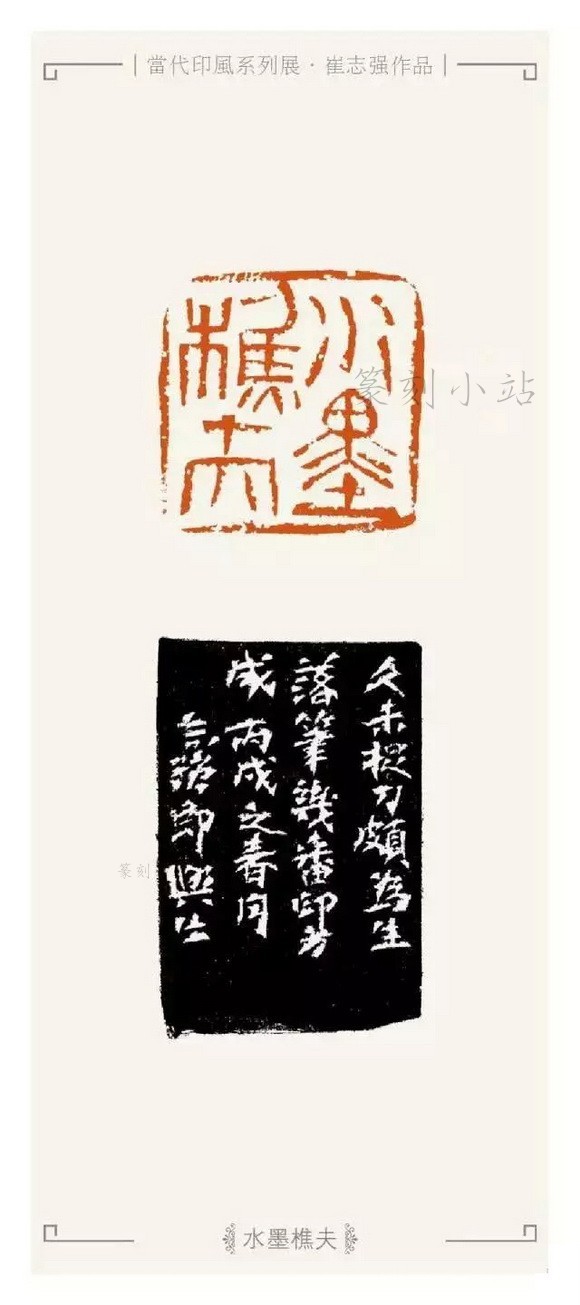 當代印風系列展·崔志强作品
水墨
樵夫
篆刻小站
久未捉刀頗為生
落筆幾番印方
成 丙戌之春月
志強即興作
篆刻
水墨樵夫